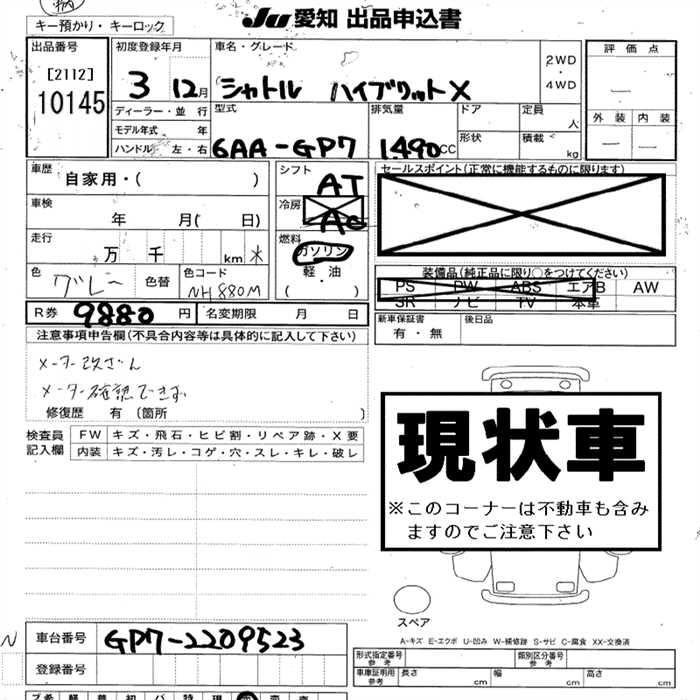 JU 愛知 出品申込書
キー預かり・キーロック
出品番号
[2112]
10145
初度登録年月
3 12月
車名・グレード
シャトル ハイブリットX
2WD
・
4WD
評価点
外装 内装
ディーラー・並行
モデル年式 年
ハンドル 左・右
型式
6AA-GP7
排気量
1490cc
ドア
形状
定員
人
積載
kg
車歴
自家用・( )
車検
年 月( 日)
走行
万 千 km *
色
グレー
色替
色コード
NH880M
シフト
AT
冷房
AC
燃料
ガソリン
軽・油
( )
セールスポイント(正常に機能するものに限ります)
装備品(純正品に限り○をつけてください)
PS PW ABS エアB AW
SR ナビ TV 本革
R券 9880 円
名変期限 月 日
新車保証書
有・無
後日品
注意事項申告欄(不具合内容等は具体的に記入して下さい)
メーター改ざん
メーター確認できず
修復歴 有 〔箇所 〕
検査員
記入欄
FW キズ・飛石・ヒビ割・リペア跡・X要
内装 キズ・汚レ・コゲ・穴・スレ・キレ・破レ
現状車
※このコーナーは不動車も含み
ますのでご注意下さい
スペア
A-キズ E-エクボ U-凹み W-補修跡 S-サビ C-腐食 XX-交換済
N
車台番号
GP7-2209523
登録番号
形式指定番号
参考
類別区分番号
参考
車庫証明用
参考
長さ cm
幅 cm
高さ cm